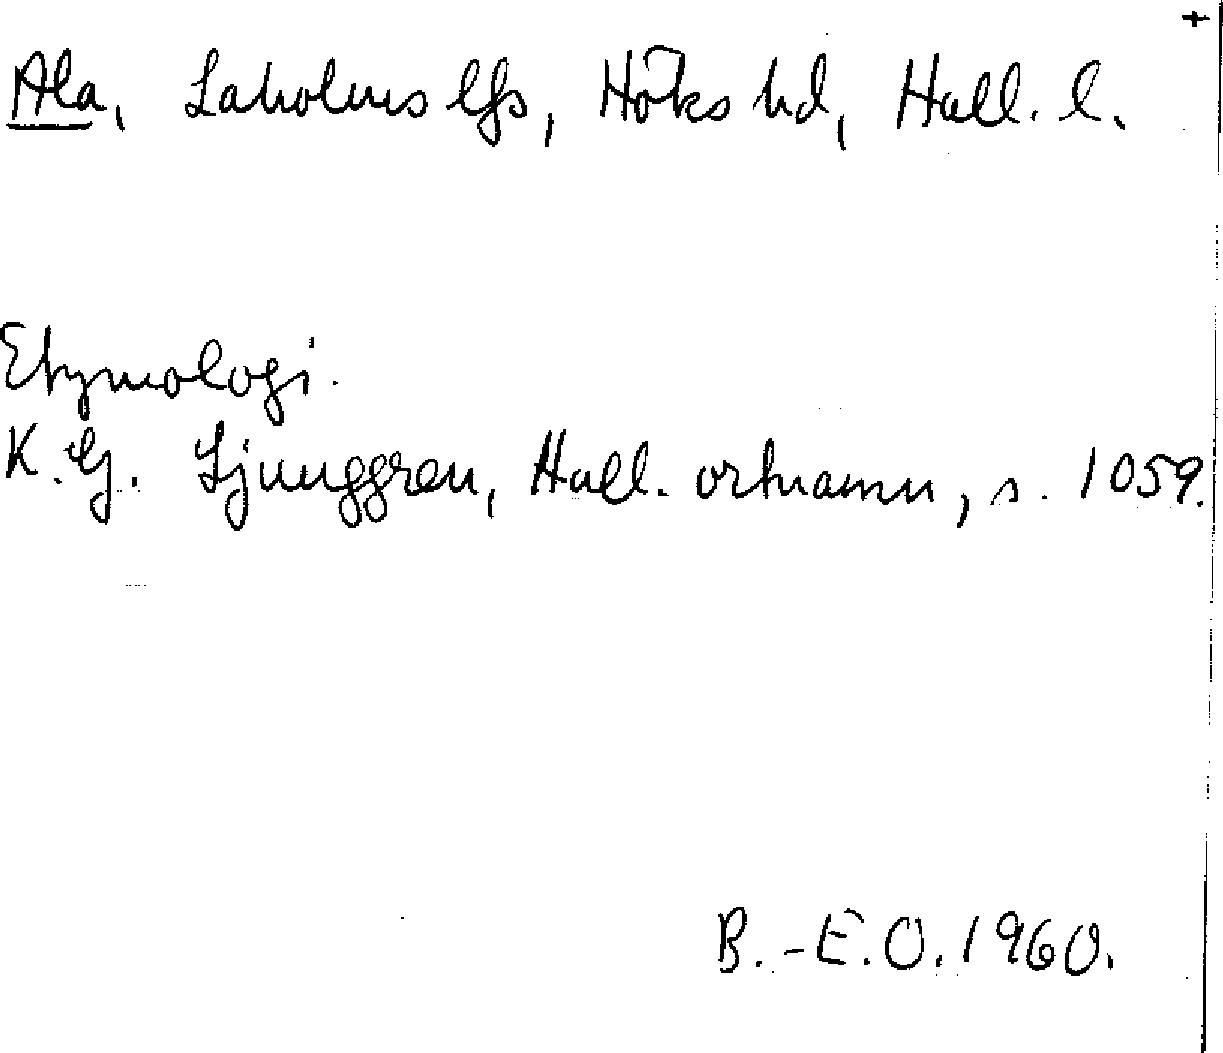 +
Ala, Laholms lfs, Höks hd, Hall. l.
Etymologi.
K. G. Ljunggren, Hall. ortnamn, s. 1059.
B.-E.O. 1960.